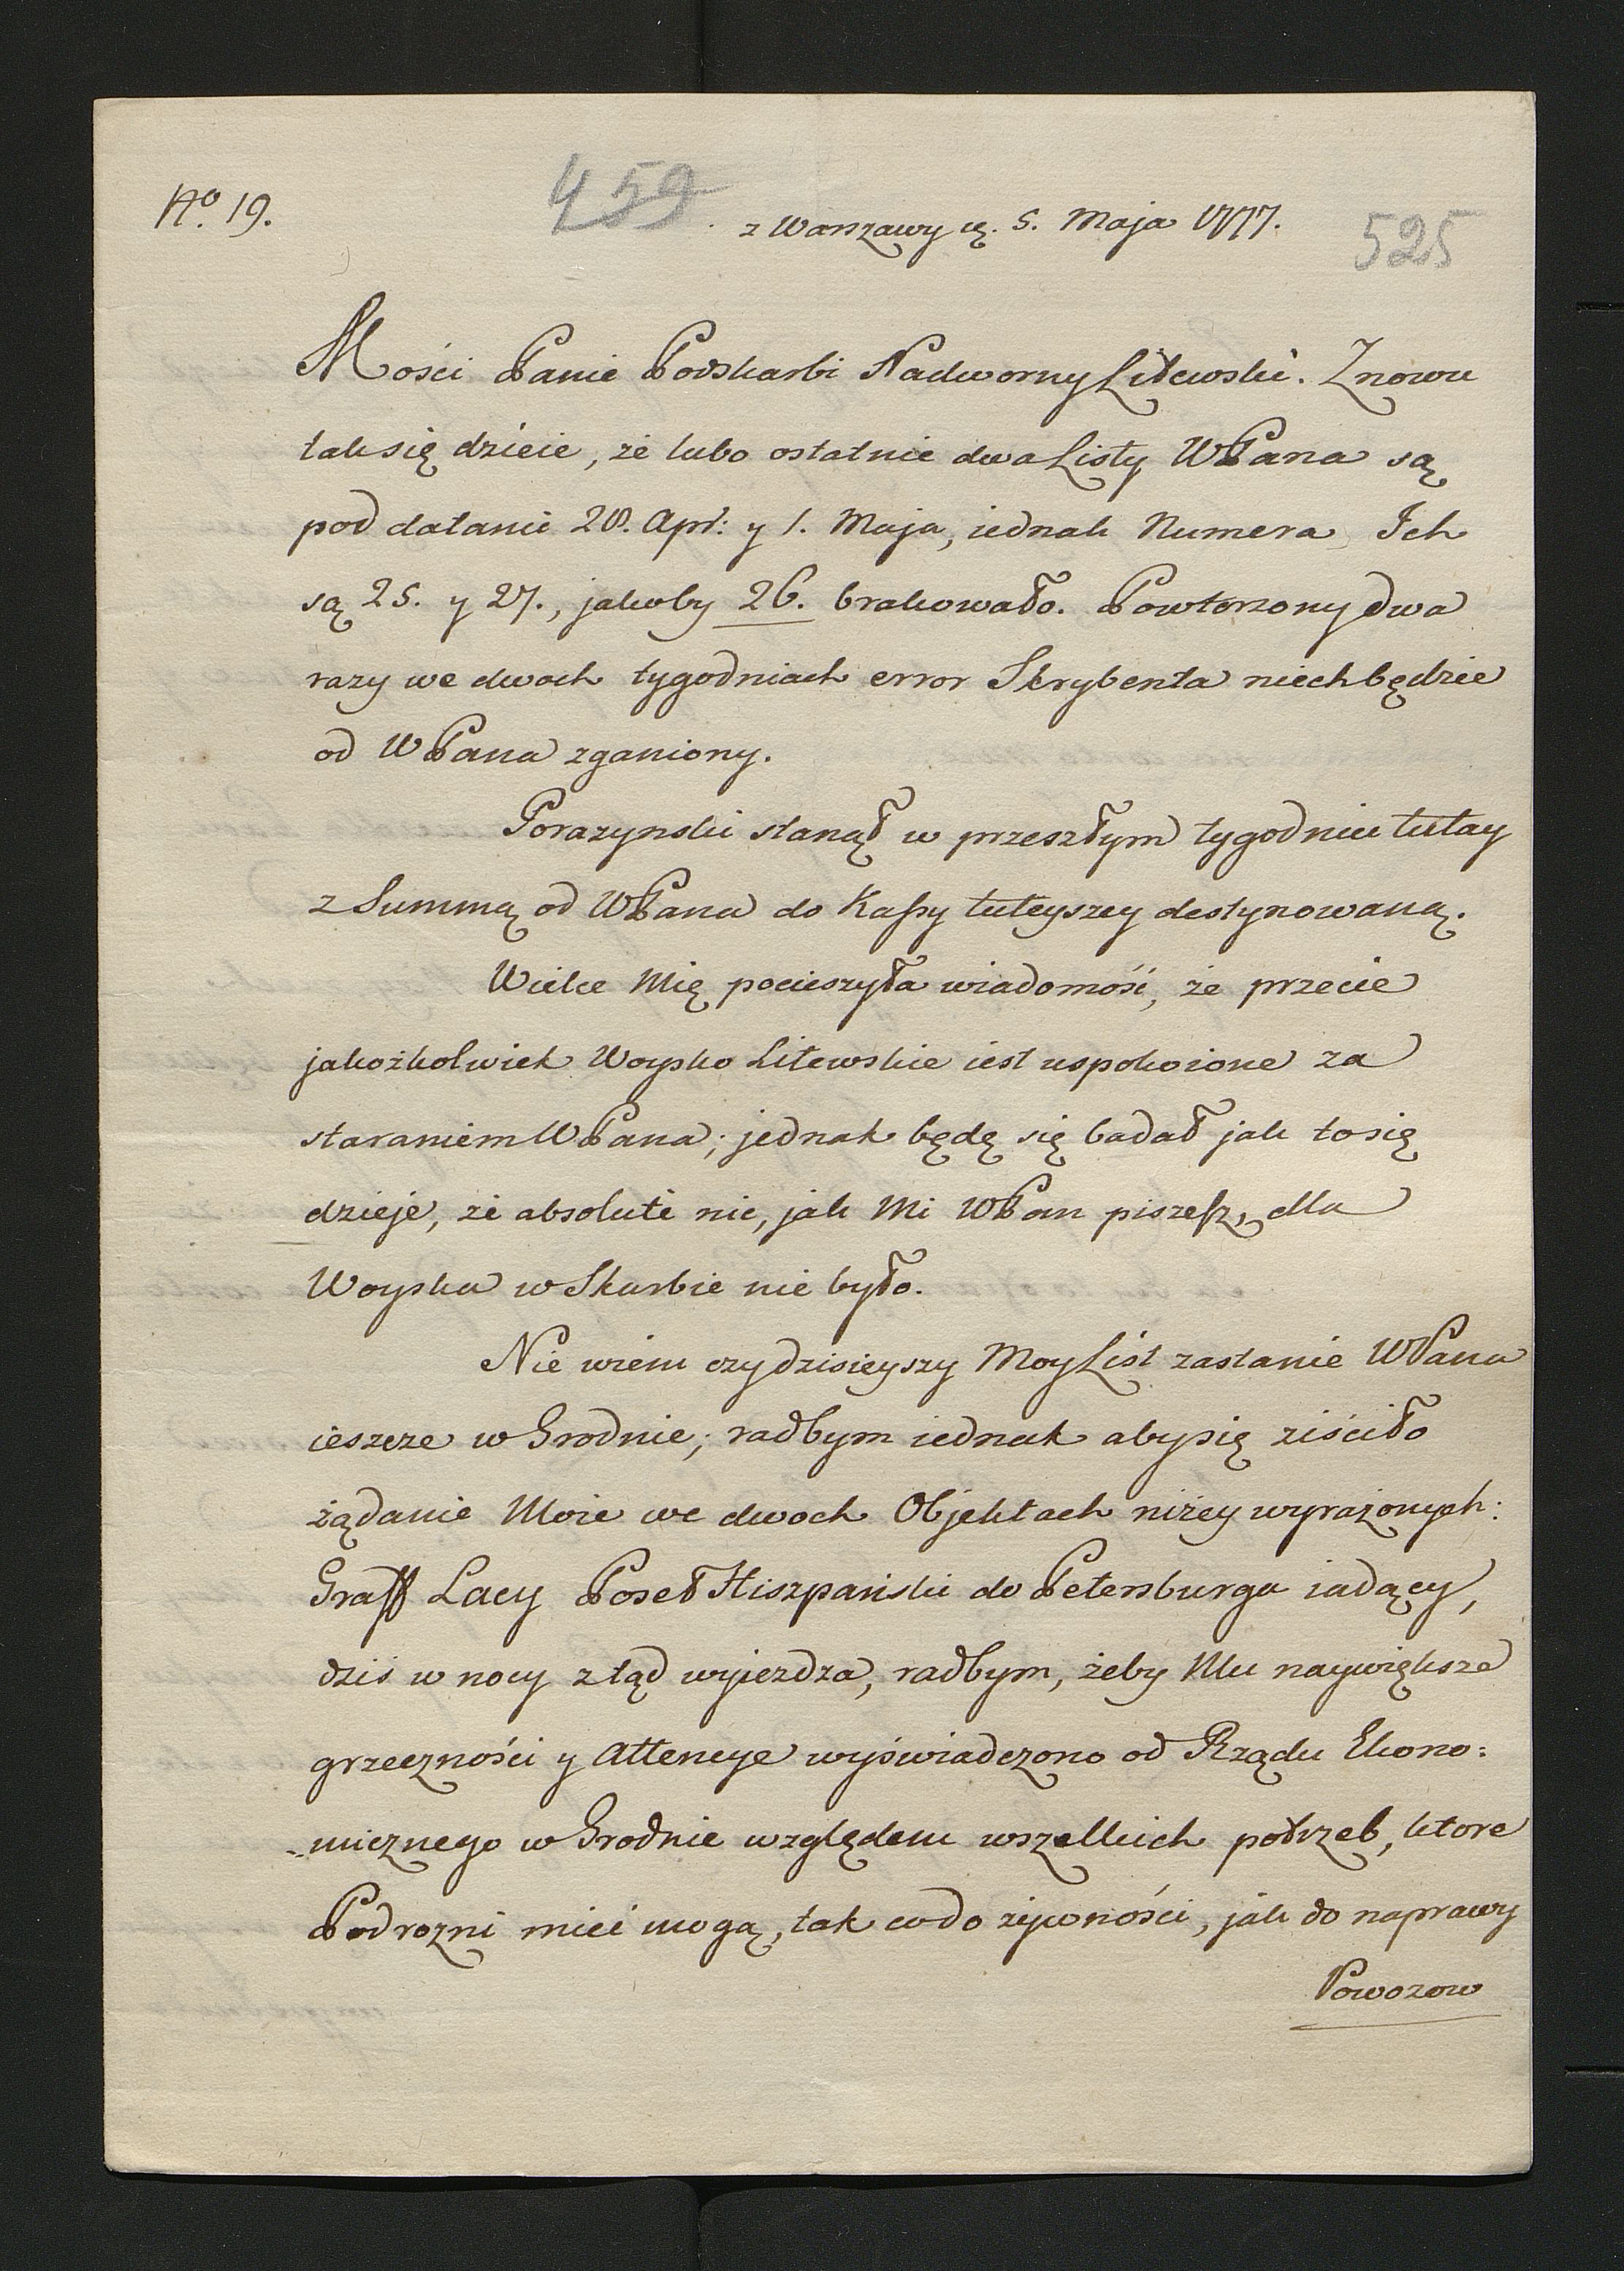 No. 19.
459
z Warszawy d. 5. Maja 1777.
525
Mości Panie Podskarbi Nadworny Litewski. Znowu
tak się dzieie, że lubo ostatnie dwa Listy WPana są
pod datami 28. Apr: y 1. Maja, iednak Numera Ich
są 25. y 27., jakoby 26. brakowało. Powtorzony dwa
razy we dwoch tygodniach error Skrybenta niech będzie
od WPana zganiony.
Porazynski stanął w przeszłym tygodniu tutay
z Summą od WPana do Kassy tuteyszey destynowaną.
Wielce Mię pocieszyła wiadomość, że przecie
jakożkolwiek Woysko Litewskie iest uspokoione za
staraniem WPana; jednak będę się badał jak to się
dzieje, że absolute nic, jak Mi WPan piszesz, dla
Woyska w Skarbie nie było.
Nie wiem czy dzisieyszy Moy List zastanie WPana
ieszcze w Grodnie; radbym iednak aby się ziściło
żądanie Moie we dwoch Objektach niżey wyrażonych:
Graff Lacy Poseł Hiszpański do Petersburga iadący,
dziś w nocy ztąd wyjezdza, radbym, żeby Mu naywiększe
grzeczności y Attencye wyświadczono od Rządu Ekono=
=micznego w Grodnie względem wszelkich potrzeb, ktore
Podrozni mieć mogą, tak co do żywności, jak do naprawy
Powozow